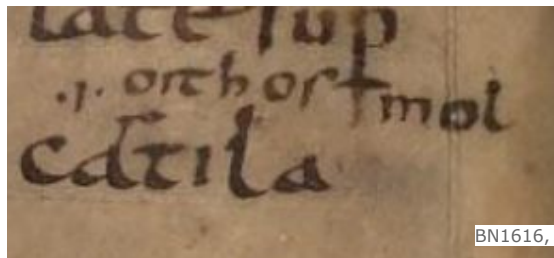 .i. orthos mol
cartila
BN1616,